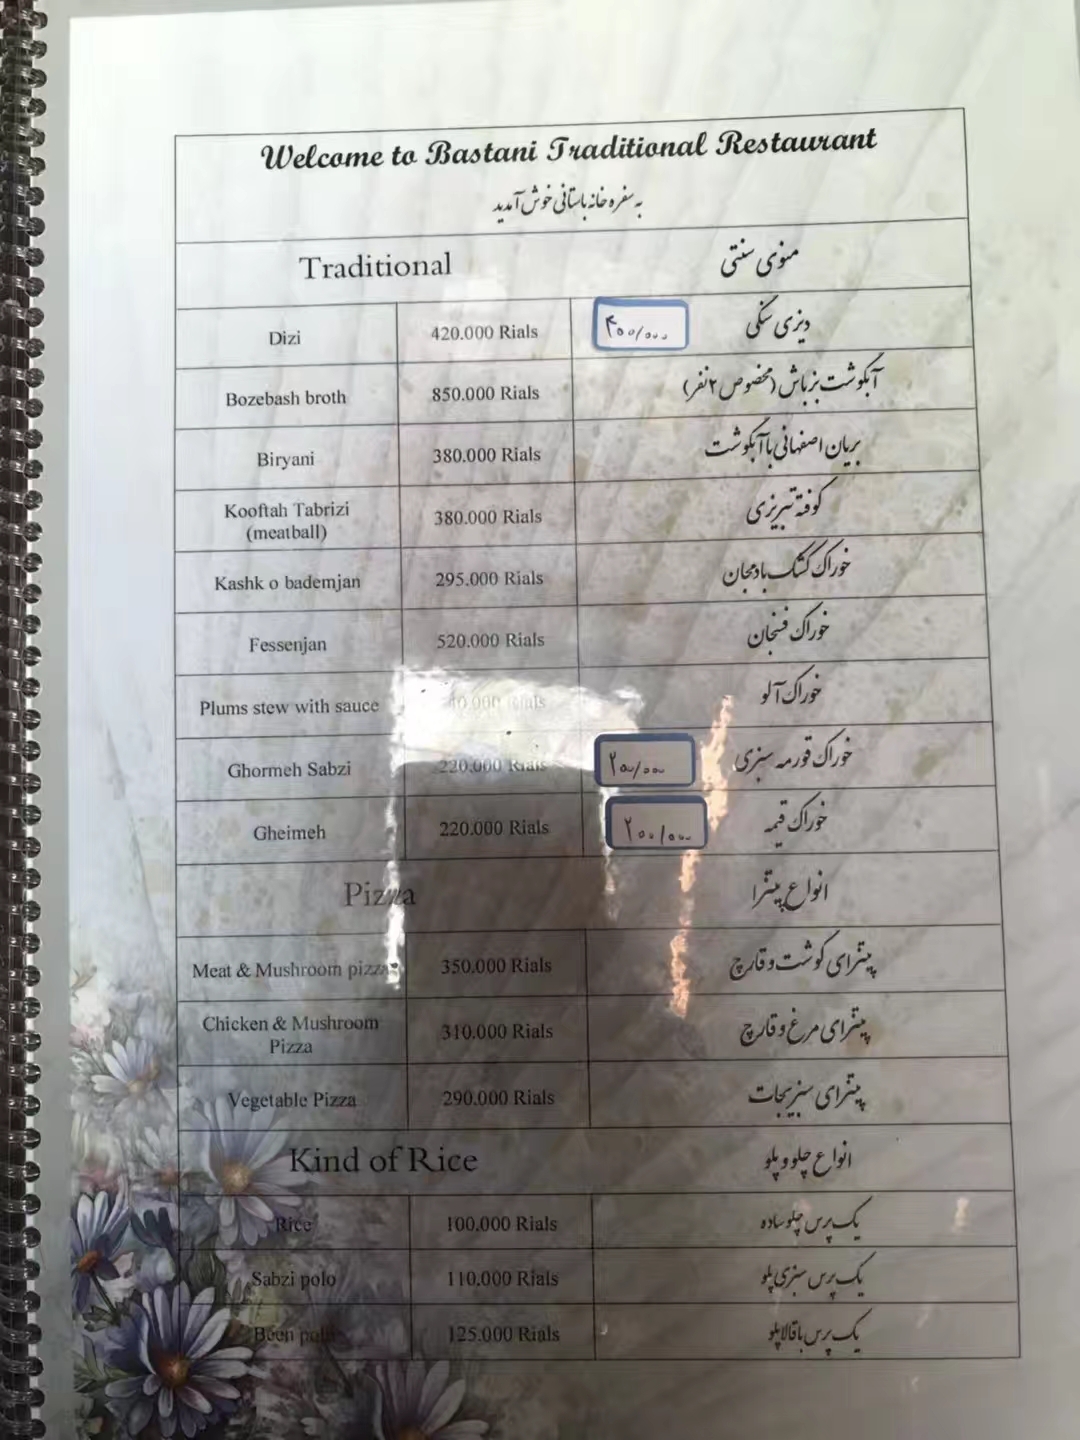 Welcome to Bastani Traditional Restaurant
به سفره خانه باستانی خوش آمدید
Traditional منوی سنتی
Dizi 420.000 Rials ۴۰۰/۰۰۰ دیزی سنگی
Bozebash broth 850.000 Rials آبگوشت بزباش (مخصوص ۲ نفر)
Biryani 380.000 Rials بریان اصفهانی با آبگوشت
Kooftah Tabrizi
(meatball) 380.000 Rials کوفته تبریزی
Kashk o bademjan 295.000 Rials خوراک کشک بادمجان
Fessenjan 520.000 Rials خوراک فسنجان
Plums stew with sauce Rials خوراک آلو
Ghormeh Sabzi 220.000 Rials ۲۰۰/۰۰۰ خوراک قورمه سبزی
Gheimeh 220.000 Rials ۲۰۰/۰۰۰ خوراک قیمه
Pizza انواع پیتزا
Meat & Mushroom pizza 350.000 Rials پیتزای گوشت و قارچ
Chicken & Mushroom
Pizza 310.000 Rials پیتزای مرغ و قارچ
Vegetable Pizza 290.000 Rials پیتزای سبزیجات
Kind of Rice انواع چلو و پلو
Rice 100.000 Rials یک پرس چلو ساده
Sabzi polo 110.000 Rials یک پرس سبزی پلو
Been polo 125.000 Rials یک پرس باقالا پلو